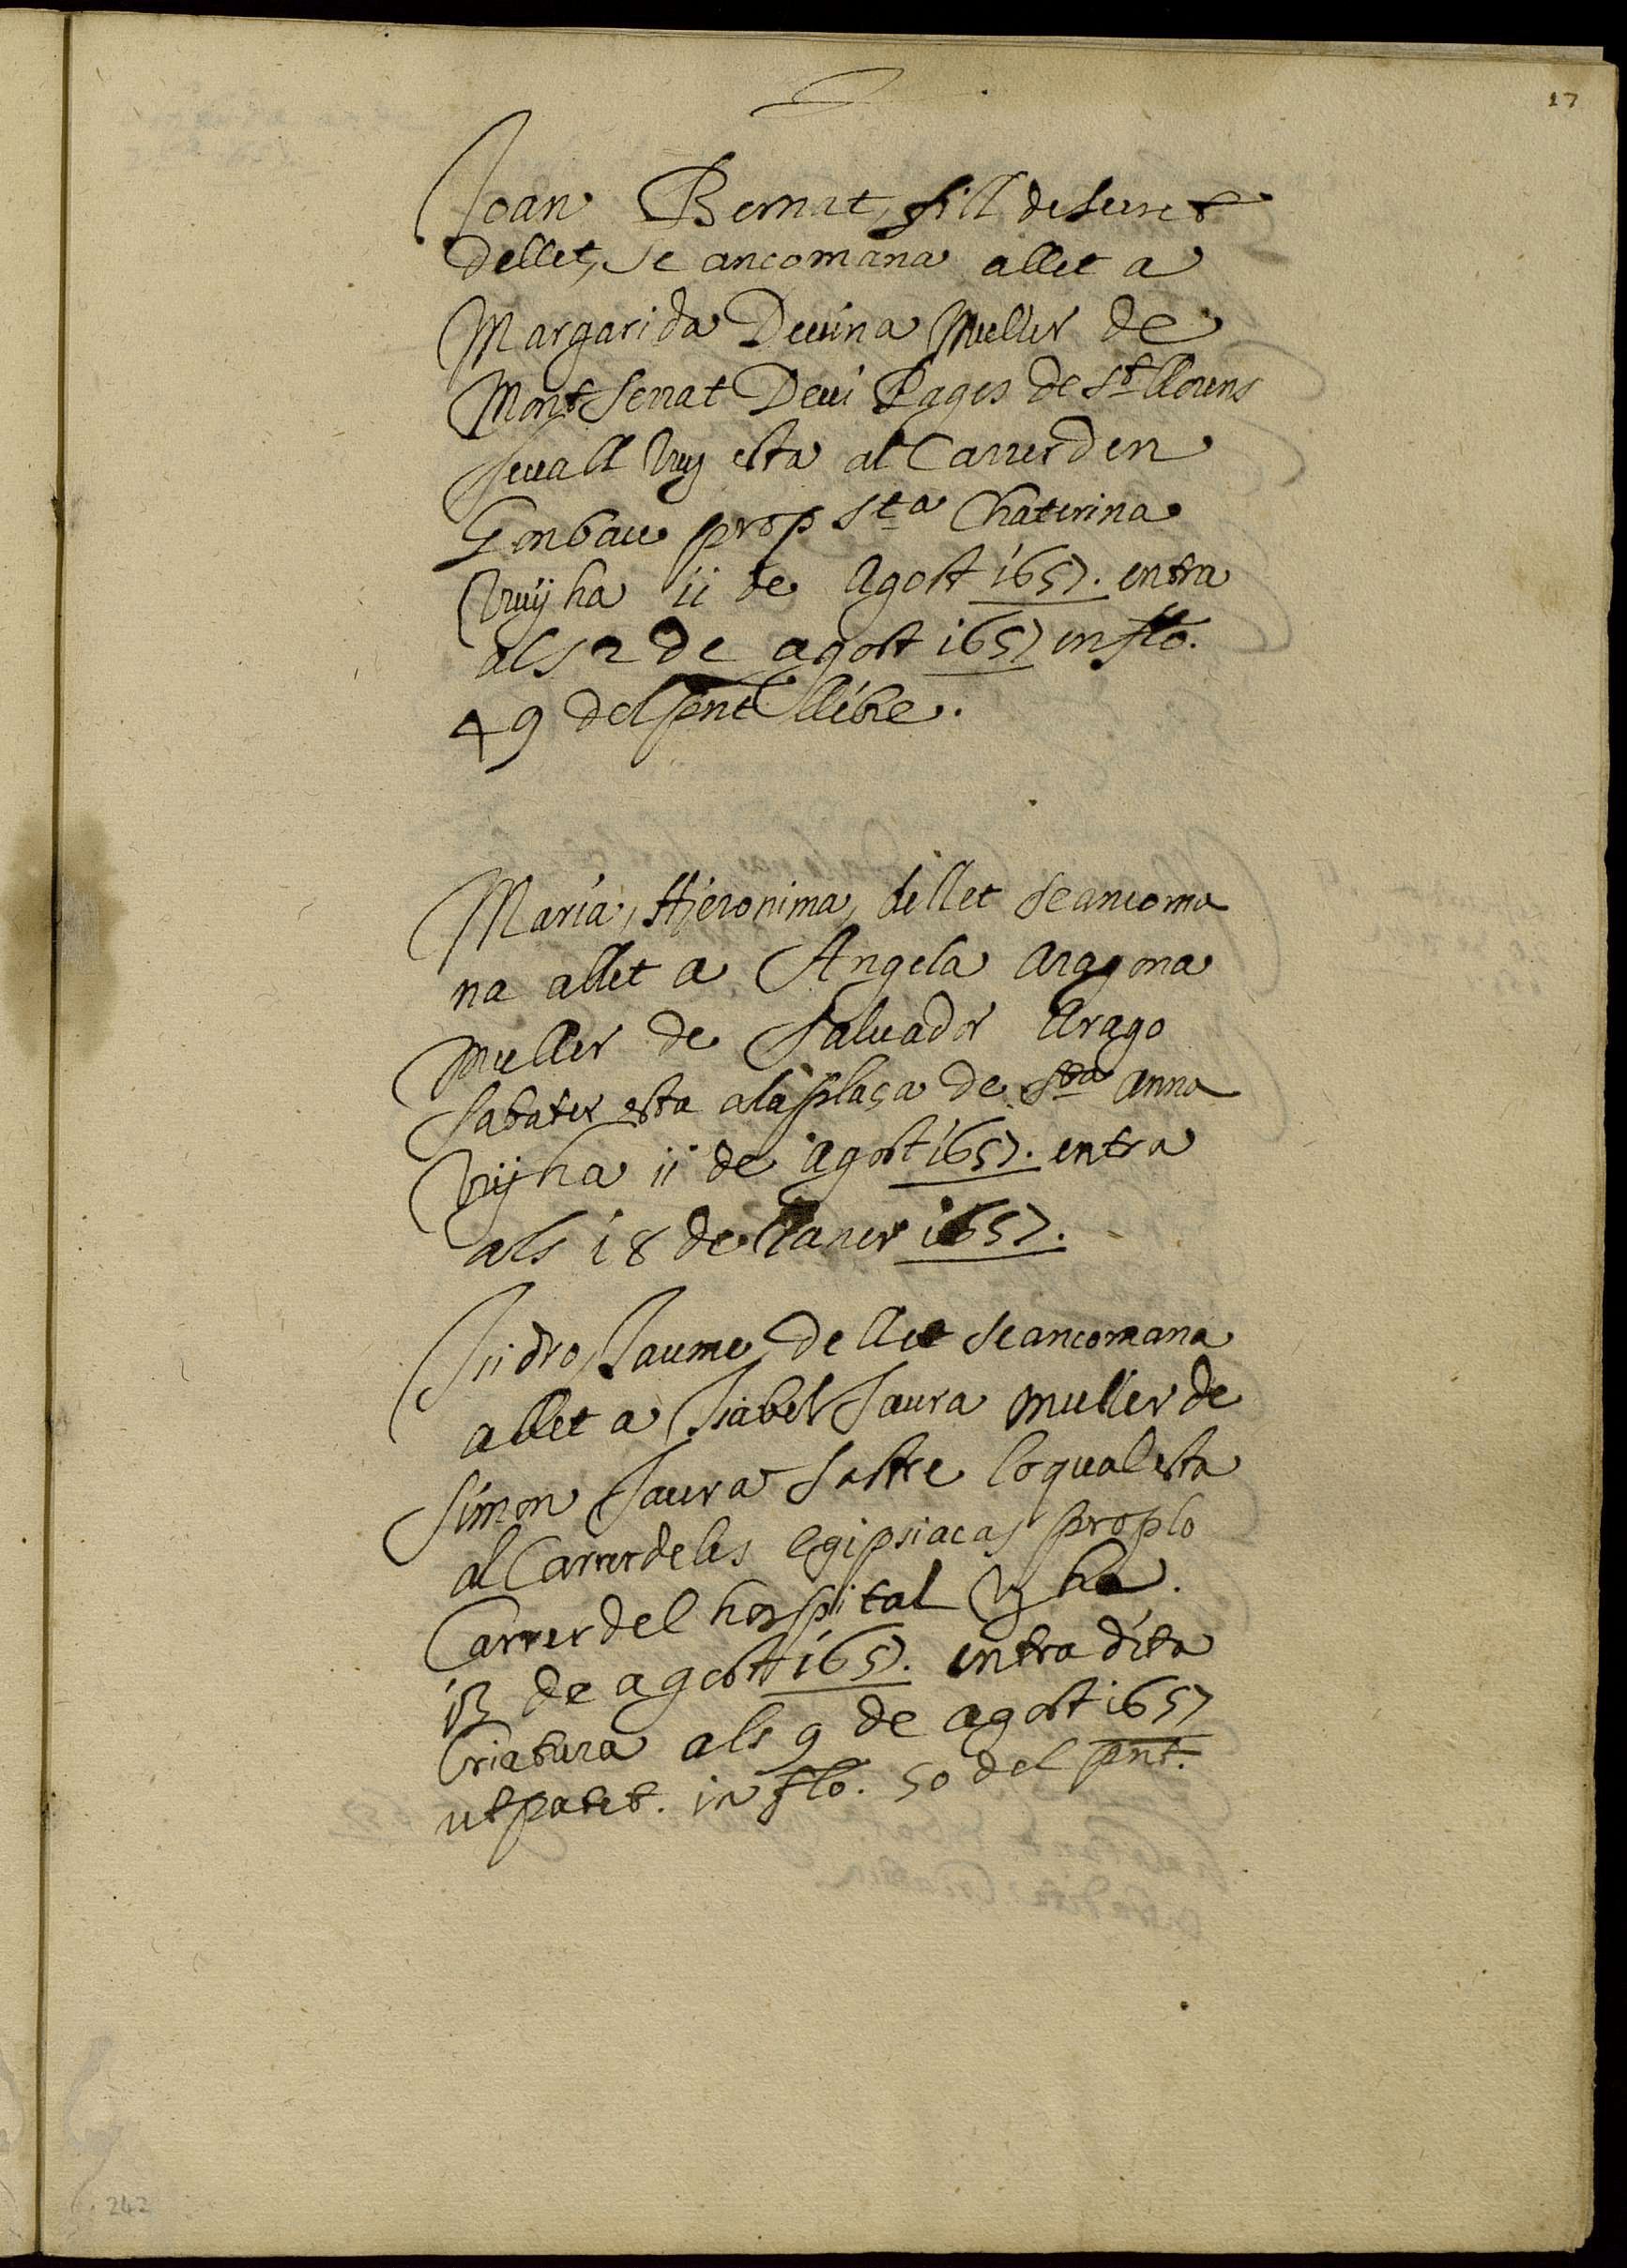 17
Joan Bernat, fill de secret
dellet, se ancomana allet a
Margarida Deuina Muller de
Montserrat Deui Pages de St. llorens
seuall vuy esta al Carrer den
Gimbau prop sta Chaterina
vuy ha ii de Agost i657. entra
als 2 de agost i657 en flo.
49 del pnt llibre.
Maria, Hieronima, dellet se ancoma
na allet a Angela Aragona
Muller de Saluador Arago
Sabater esta ala plaça de sta Anna
vuy ha ii de Agost i657. entra
als i8 de Janer i657.
Isidro, Jaume, de llet se ancomana
allet a Isabel Jaura Muller de
Simon Jaura sastre lo qual esta
al Carrer de les egipsiacas prop lo
Carrer del hospital vy ha.
i3 de agost i657. entra dita
Criatura als 9 de agost i657
ut patet. in flo. 50 del pnt.
242